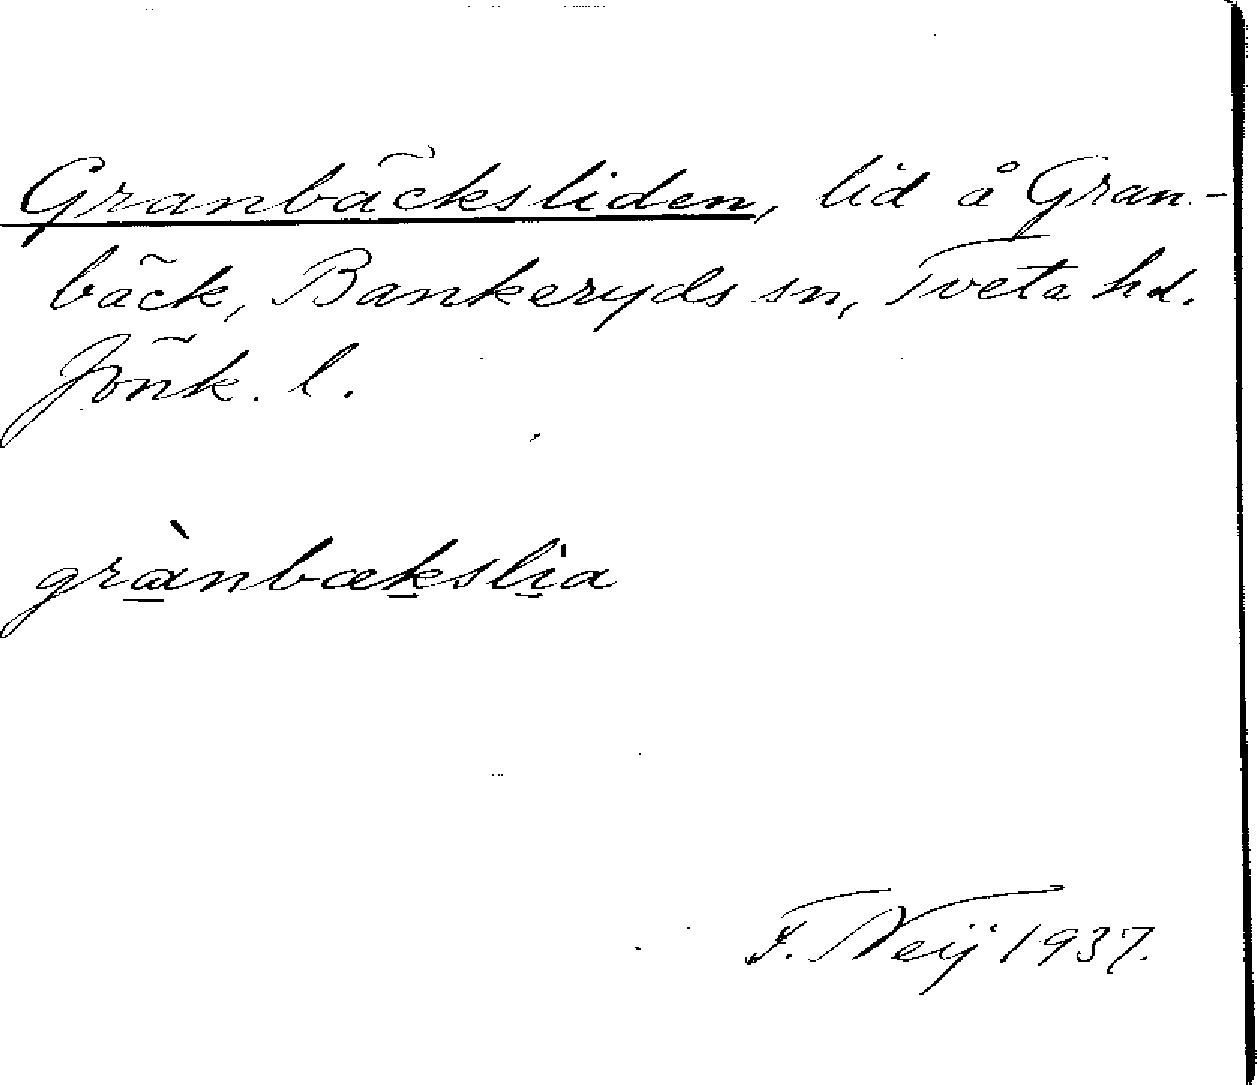 Granbäcksliden, lid å Gran-
bäck, Bankeryds sn, Tveta hd.
Jönk. l.
grànbækslia
F. Neij 1937.